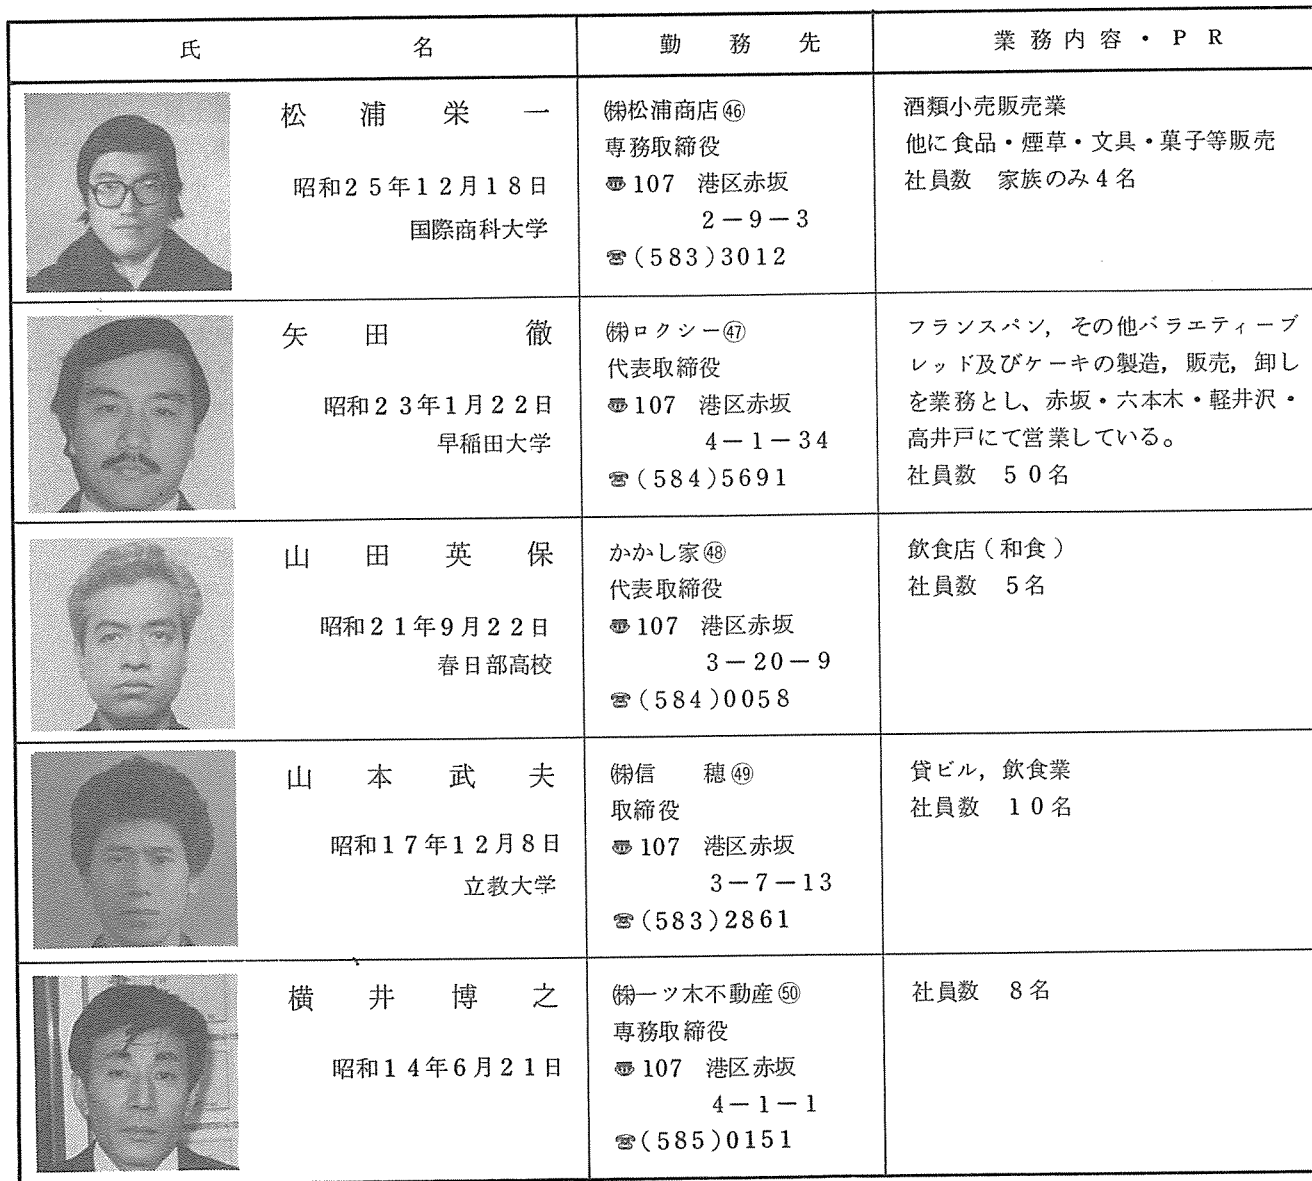 氏名 勤務先 業務内容・PR
松浦栄一
昭和25年12月18日
国際商科大学
㈱松浦商店㊻
専務取締役
〠107 港区赤坂
2-9-3
☎(583)3012
酒類小売販売業
他に食品・煙草・文具・菓子等販売
社員数 家族のみ4名
矢田徹
昭和23年1月22日
早稲田大学
㈱ロクシー㊼
代表取締役
〠107 港区赤坂
4-1-34
☎(584)5691
フランスパン,その他バラエティーブ
レッド及びケーキの製造,販売,卸し
を業務とし、赤坂・六本木・軽井沢・
高井戸にて営業している。
社員数 50名
山田英保
昭和21年9月22日
春日部高校
かかし家㊽
代表取締役
〠107 港区赤坂
3-20-9
☎(584)0058
飲食店(和食)
社員数 5名
山本武夫
昭和17年12月8日
立教大学
㈱信 穂㊾
取締役
〠107 港区赤坂
3-7-13
☎(583)2861
貸ビル,飲食業
社員数 10名
横井博之
昭和14年6月21日
㈱一ツ木不動産㊿
専務取締役
〠107 港区赤坂
4-1-1
☎(585)0151
社員数 8名